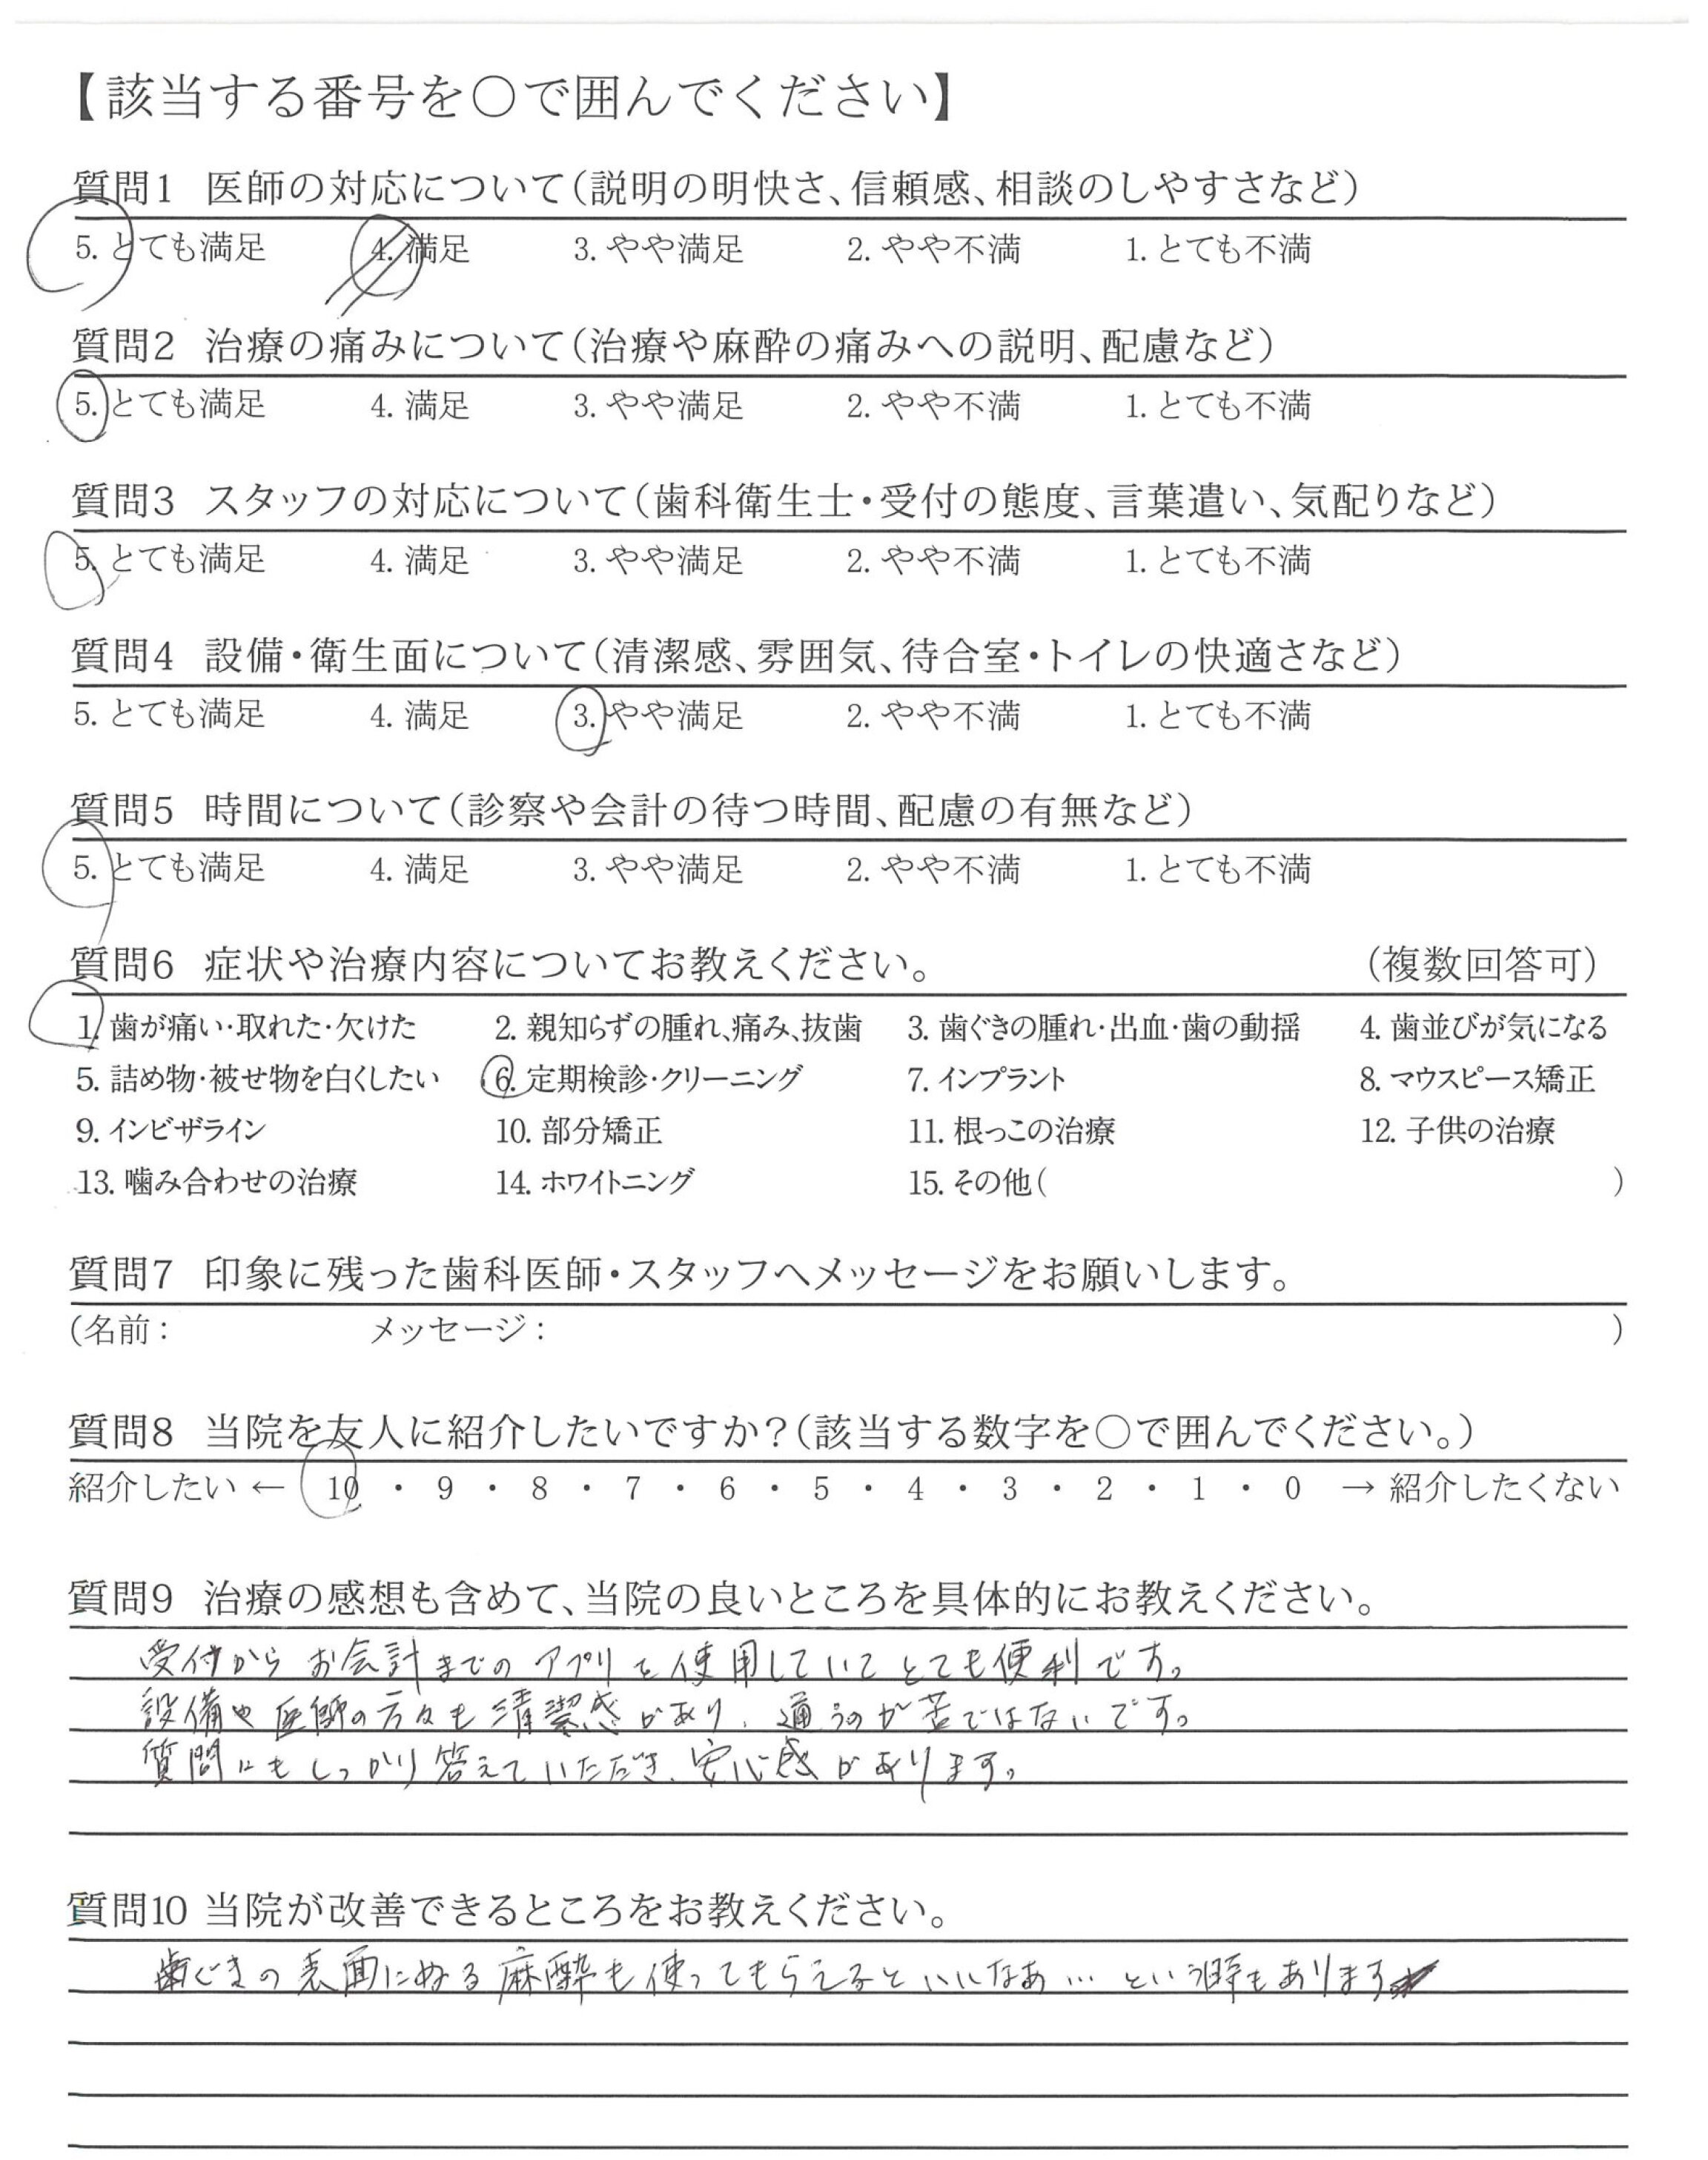 【該当する番号を○で囲んでください】
質問1 医師の対応について（説明の明快さ、信頼感、相談のしやすさなど）
5. とても満足 4. 満足 3. やや満足 2. やや不満 1. とても不満
質問2 治療の痛みについて（治療や麻酔の痛みへの説明、配慮など）
5. とても満足 4. 満足 3. やや満足 2. やや不満 1. とても不満
質問3 スタッフの対応について（歯科衛生士・受付の態度、言葉遣い、気配りなど）
5. とても満足 4. 満足 3. やや満足 2. やや不満 1. とても不満
質問4 設備・衛生面について（清潔感、雰囲気、待合室・トイレの快適さなど）
5. とても満足 4. 満足 3. やや満足 2. やや不満 1. とても不満
質問5 時間について（診察や会計の待つ時間、配慮の有無など）
5. とても満足 4. 満足 3. やや満足 2. やや不満 1. とても不満
質問6 症状や治療内容についてお教えください。 （複数回答可）
1. 歯が痛い・取れた・欠けた 2. 親知らずの腫れ、痛み、抜歯 3. 歯ぐきの腫れ・出血・歯の動揺 4. 歯並びが気になる
5. 詰め物・被せ物を白くしたい 6. 定期検診・クリーニング 7. インプラント 8. マウスピース矯正
9. インビザライン 10. 部分矯正 11. 根っこの治療 12. 子供の治療
13. 噛み合わせの治療 14. ホワイトニング 15. その他（ ）
質問7 印象に残った歯科医師・スタッフへメッセージをお願いします。
（名前： メッセージ： ）
質問8 当院を友人に紹介したいですか？（該当する数字を○で囲んでください。）
紹介したい ← 10 ・ 9 ・ 8 ・ 7 ・ 6 ・ 5 ・ 4 ・ 3 ・ 2 ・ 1 ・ 0 → 紹介したくない
質問9 治療の感想も含めて、当院の良いところを具体的にお教えください。
受付からお会計までのアプリを使用していてとても便利です。
設備や医師の方々も清潔感があり、通うのが苦ではないです。
質問にもしっかり答えていただき、安心感があります。
質問10 当院が改善できるところをお教えください。
歯ぐきの表面にぬる麻酔も使ってもらえるといいなあ…という時もあります